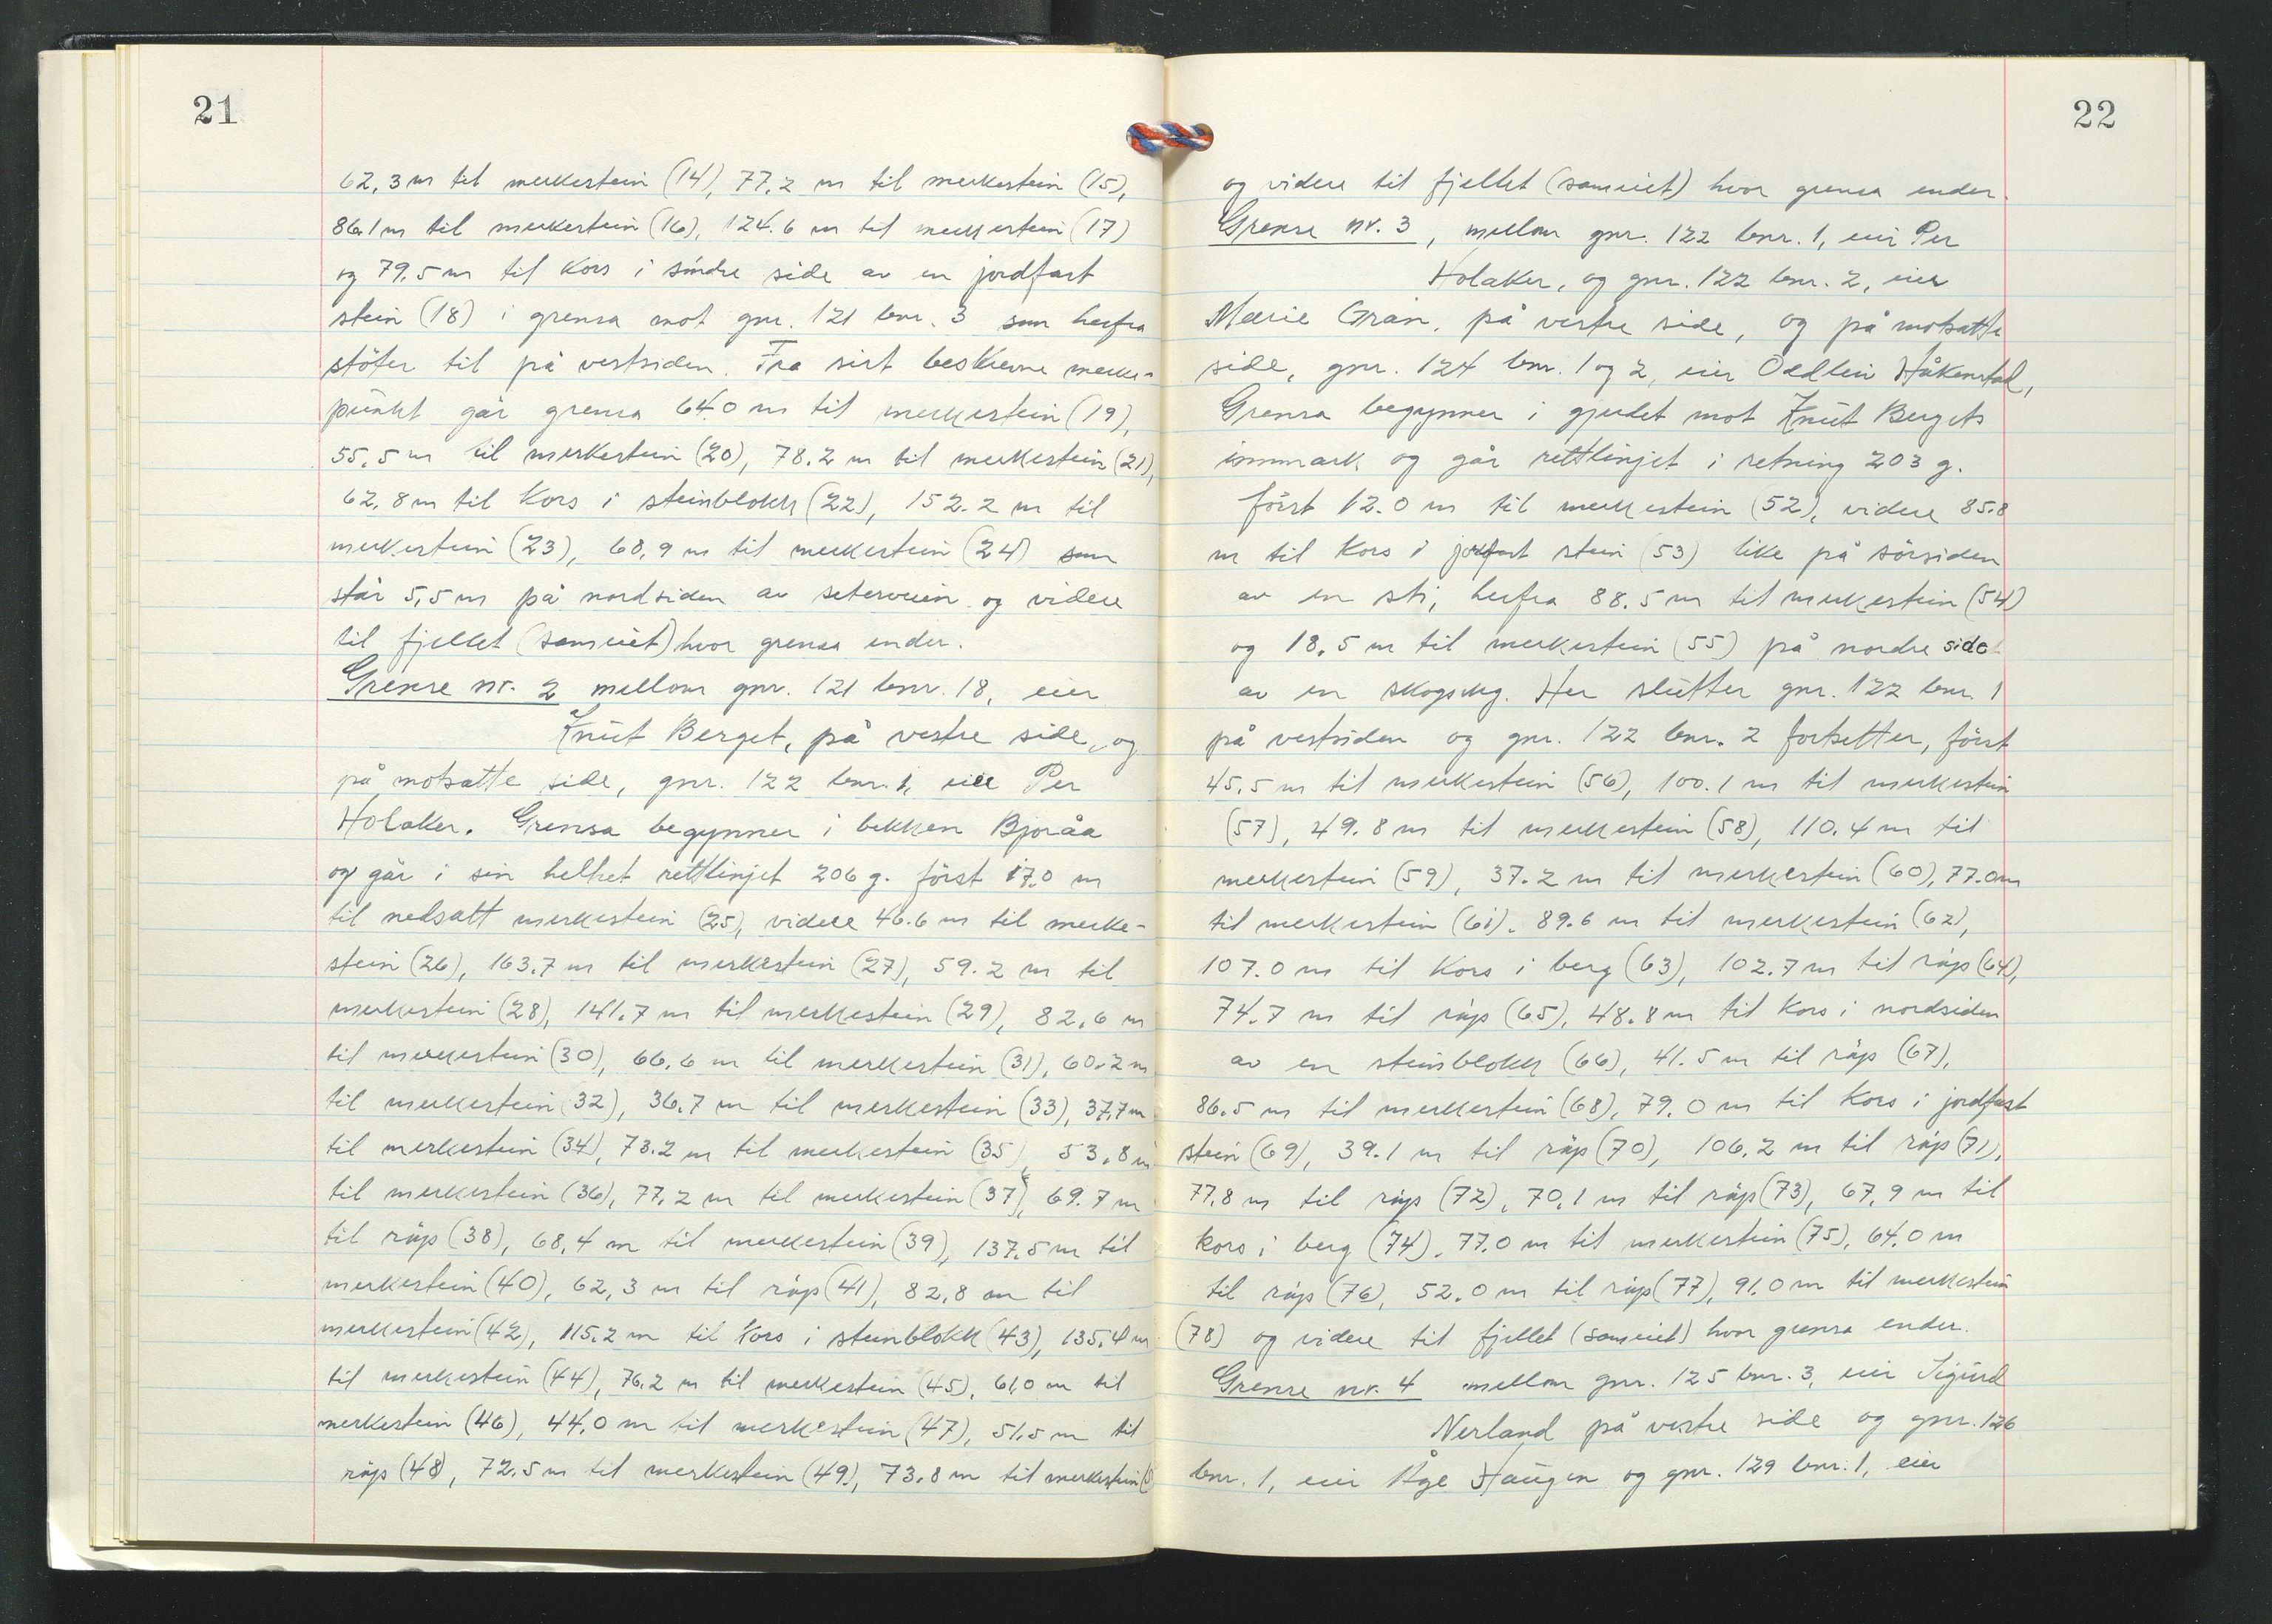 21
62,3 m til merkestein (14), 77,2 m til merkestein (15),
86.1 m til merkestein (16), 124.6 m til merkestein (17)
og 79,5 m til kors i søndre side av en jordfast
stein (18) i grensa mot gnr. 121 bnr. 3 som herfra
støter til på vestsiden. Fra sist beskrevne merke-
punkt går grensa 64.0 m til merkestein (19),
55,5 m til merkestein (20), 78.2 m til merkestein (21),
62,8 m til kors i steinblokk (22), 152.2 m til
merkestein (23), 68,9 m til merkestein (24) som
står 5,5 m på nordsiden av seterveien og videre
til fjellet (sameiet) hvor grensa ender.
Grense nr. 2 mellom gnr. 121 bnr. 18, eier
Knut Berget, på vestre side, og
på motsatte side, gnr. 122 bnr. 1, eier Per
Holaker. Grensa begynner i bekken Bjoråa
og går i sin helhet rettlinjet 206 g. først 17.0 m
til nedsatt merkestein (25), videre 46.6 m til merke-
stein (26), 163.7 m til merkestein (27), 59.2 m til
merkestein (28), 141.7 m til merkestein (29), 82.6 m
til merkestein (30), 66,6 m til merkestein (31), 60.2 m
til merkestein (32), 36.7 m til merkestein (33), 37,7 m
til merkestein (34), 73.2 m til merkestein (35), 53,8 m
til merkestein (36), 77,2 m til merkestein (37), 69.7 m
til røys (38), 68,4 m til merkestein (39), 137.5 m til
merkestein (40), 62,3 m til røys (41), 82,8 m til
merkestein (42), 115.2 m til kors i steinblokk (43), 135,4 m
til merkestein (44), 76.2 m til merkestein (45), 61,0 m til
merkestein (46), 44,0 m til merkestein (47), 51,5 m til
røys (48), 72.5 m til merkestein (49), 73.8 m til merkestein
22
og videre til fjellet (sameiet) hvor grensa ender.
Grense nr. 3, mellom gnr. 122 bnr. 1, eier Per
Holaker, og gnr. 122 bnr. 2, eier
Marie Gran, på vestre side, og på motsatte
side, gnr. 124 bnr. 1 og 2, eier Oddlein Håkenstad,
Grensa begynner i gjerdet mot Knut Bergets
innmark og går rettlinjet i retning 203 g.
først 12.0 m til merkestein (52), videre 85.8
m til kors i jordfast stein (53) like på sørsiden
av en sti, herfra 88.5 m til merkestein (54)
og 18.5 m til merkestein (55) på nordre side
av en skogsveg. Her slutter gnr. 122 bnr. 1
på vestsiden og gnr. 122 bnr. 2 fortsetter, først
45.5 m til merkestein (56), 100.1 m til merkestein
(57), 49.8 m til merkestein (58), 110.4 m til
merkestein (59), 37.2 m til merkestein (60), 77.0 m
til merkestein (61), 89.6 m til merkestein (62),
107.0 m til kors i berg (63), 102.7 m til røys (64),
74.7 m til røys (65), 48.8 m til kors i nordsiden
av en steinsblokk (66), 41.5 m til røys (67),
86.5 m til merkestein (68), 79.0 m til kors i jordfast
stein (69), 39.1 m til røys (70), 106.2 m til røys (71),
77.8 m til røys (72), 70,1 m til røys (73), 67,9 m til
kors i berg (74), 77.0 m til merkestein (75), 64.0 m
til røys (76), 52.0 m til røys (77), 91.0 m til merkestein
(78) og videre til fjellet (sameiet) hvor grensa ender.
Grense nr. 4 mellom gnr. 125 bnr. 3, eier Sigurd
Nerland på vestre side og gnr. 126
bnr. 1, eier Åge Haugen og gnr. 129 bnr. 1, eier